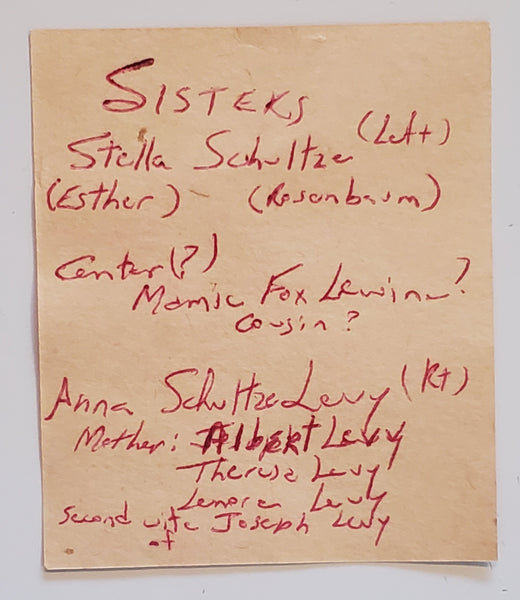 SISTERS
Stella Schultze (Left)
(Esther) (Rosenbaum)
Center (?)
Mamie Fox Lewine?
cousin?
Anna Schultze Levy (Rt)
Mother: Albert Levy
Theresa Levy
Lenora Levy
second wife Joseph Levy
of